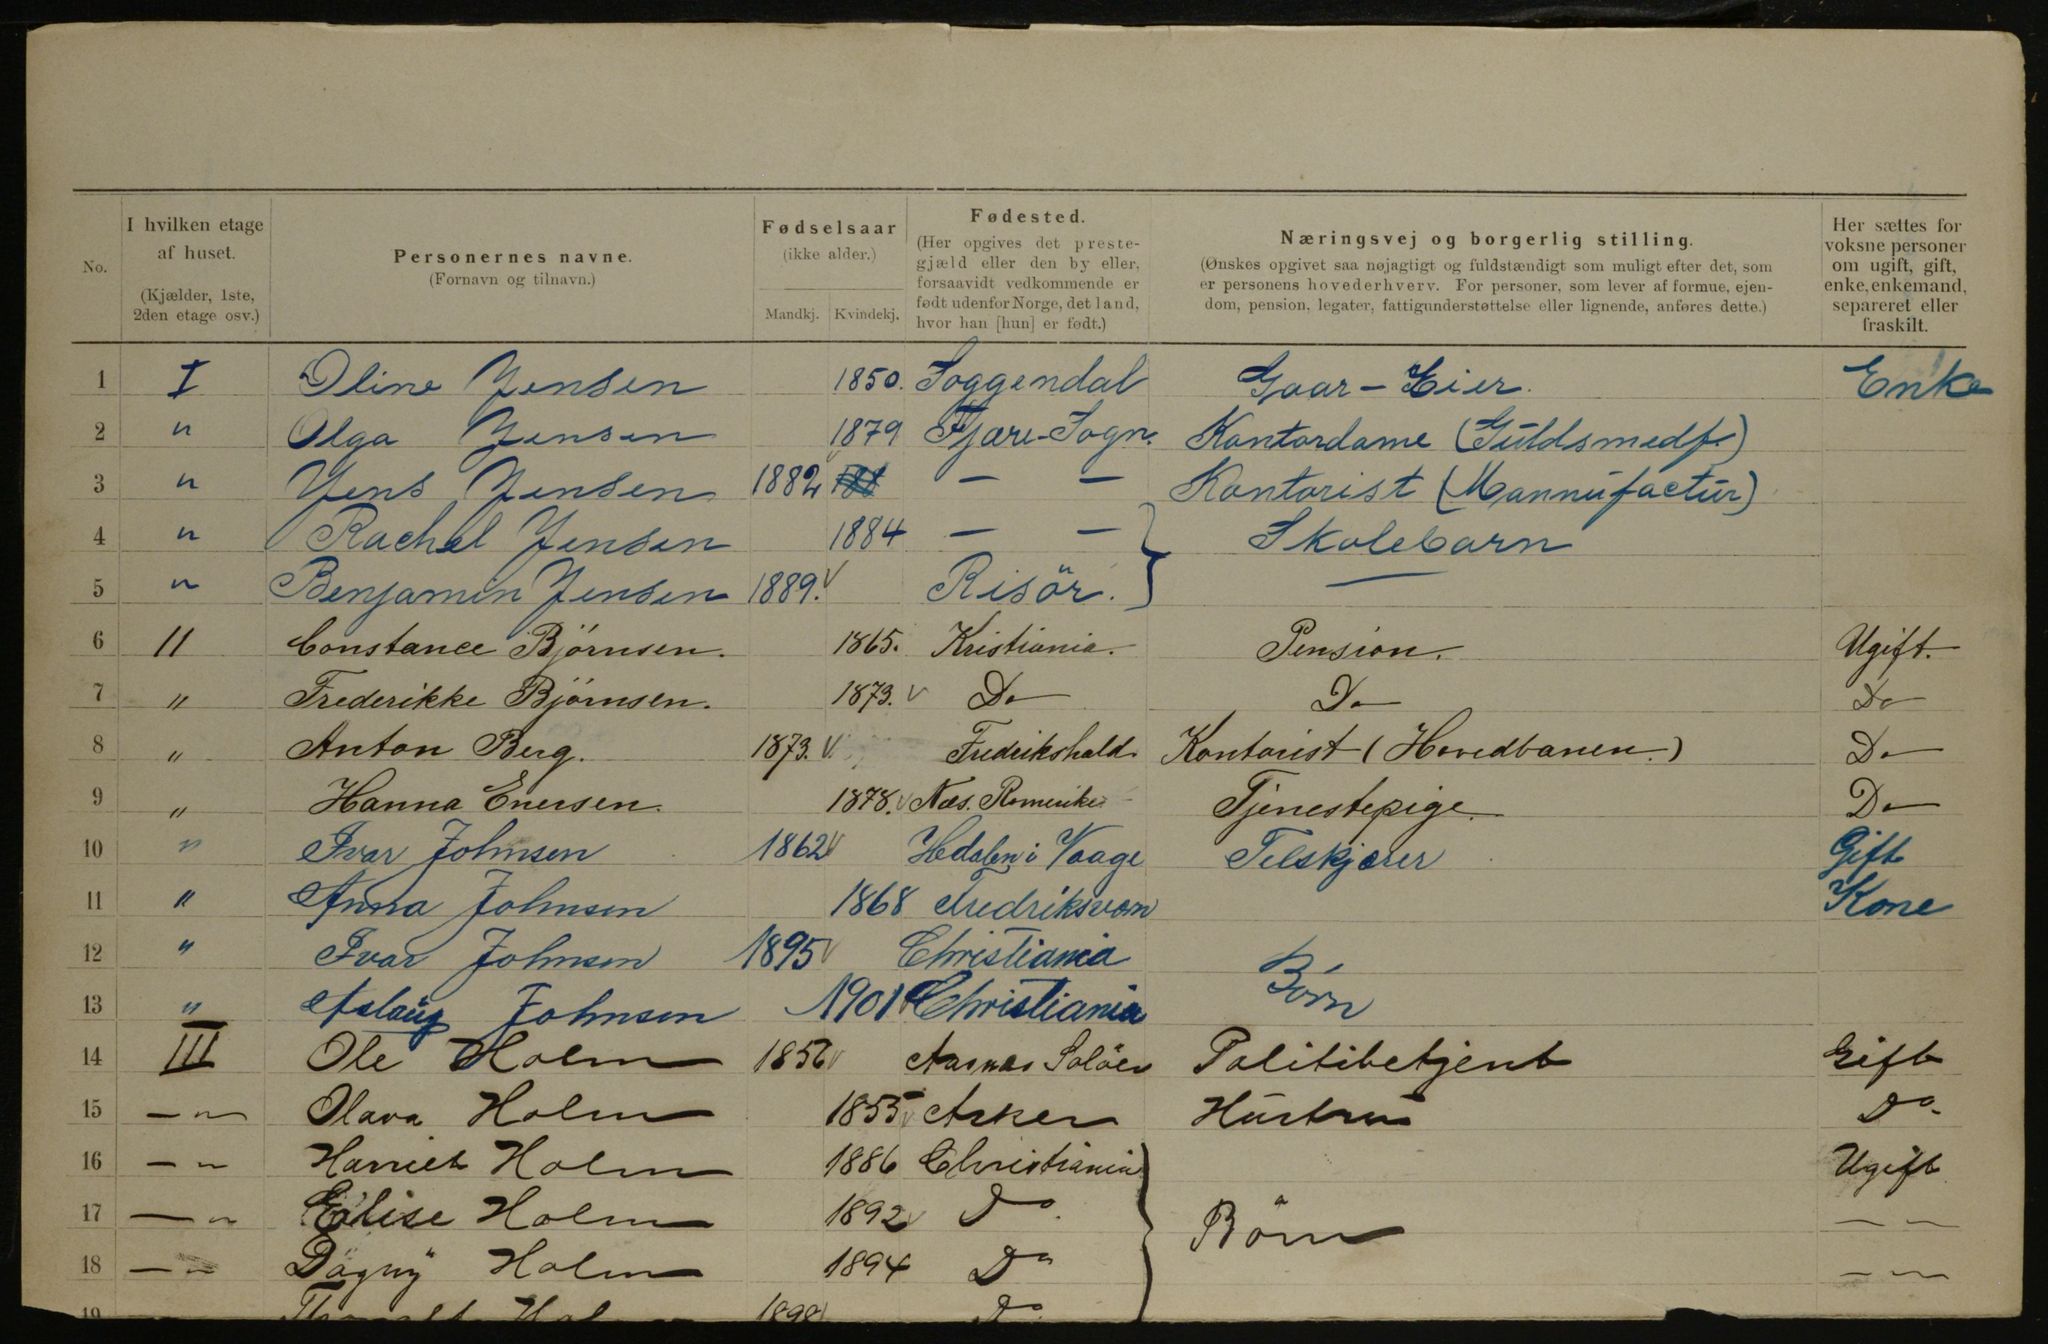 No.
I hvilken etage
af huset.
(Kjælder, 1ste,
2den etage osv.)
Personernes navne.
(Fornavn og tilnavn.)
Fødselsaar
(ikke alder.)
Mandkj. Kvindekj.
Fødested.
(Her opgives det preste-
gjæld eller den by eller,
forsaavidt vedkommende er
født udenfor Norge, det land,
hvor han [hun] er født.)
Næringsvej og borgerlig stilling.
(Ønskes opgivet saa nøjagtigt og fuldstændigt som muligt efter det, som
er personens hovederhverv. For personer, som lever af formue, ejen-
dom, pension, legater, fattigunderstøttelse eller lignende, anføres dette.)
Her sættes for
voksne personer
om ugift, gift,
enke, enkemand,
separeret eller
fraskilt.
1 I Oline Jensen 1850. Soggendal Gaar-Eier. Enke
2 " Olga Jensen 1879 Fjære-Sogn. Kontordame (Guldsmedf.)
3 " Jens Jensen 1882 — — Kontorist (Mannufactur)
4 " Rachel Jensen 1884 — — Skolebarn
5 " Benjamin Jensen 1889. Risör. —
6 II Constance Björnsen. 1865. Kristiania. Pension. Ugift.
7 " Frederikke Björnsen. 1873. Do Do Do
8 " Anton Berg. 1873. Fredrikshald. Kontorist (Hovedbanen.) Do
9 " Hanna Enersen. 1878. Næs. Romerike Tjenestepige. Do
10 " Ivar Johnsen 1862 Hedalen i Vaage Felskjærer Gift
11 " Anna Johnsen 1868 Fredriksværn Kone
12 " Ivar Johnsen 1895 Christiania
13 " Aslaug Johnsen 1901 Christiania Børn
14 III Ole Holm 1856 Aasnæs Solöer Politibetjent Gift
15 — " — Olava Holm 1855 Asker Hustru Do.
16 — " Harriet Holm 1886 Christiania Ugift
17 — " Elise Holm 1892 Do. Börn — —
18 — " Dagny Holm 1894 Do — —
19 Holm 1898 Do.